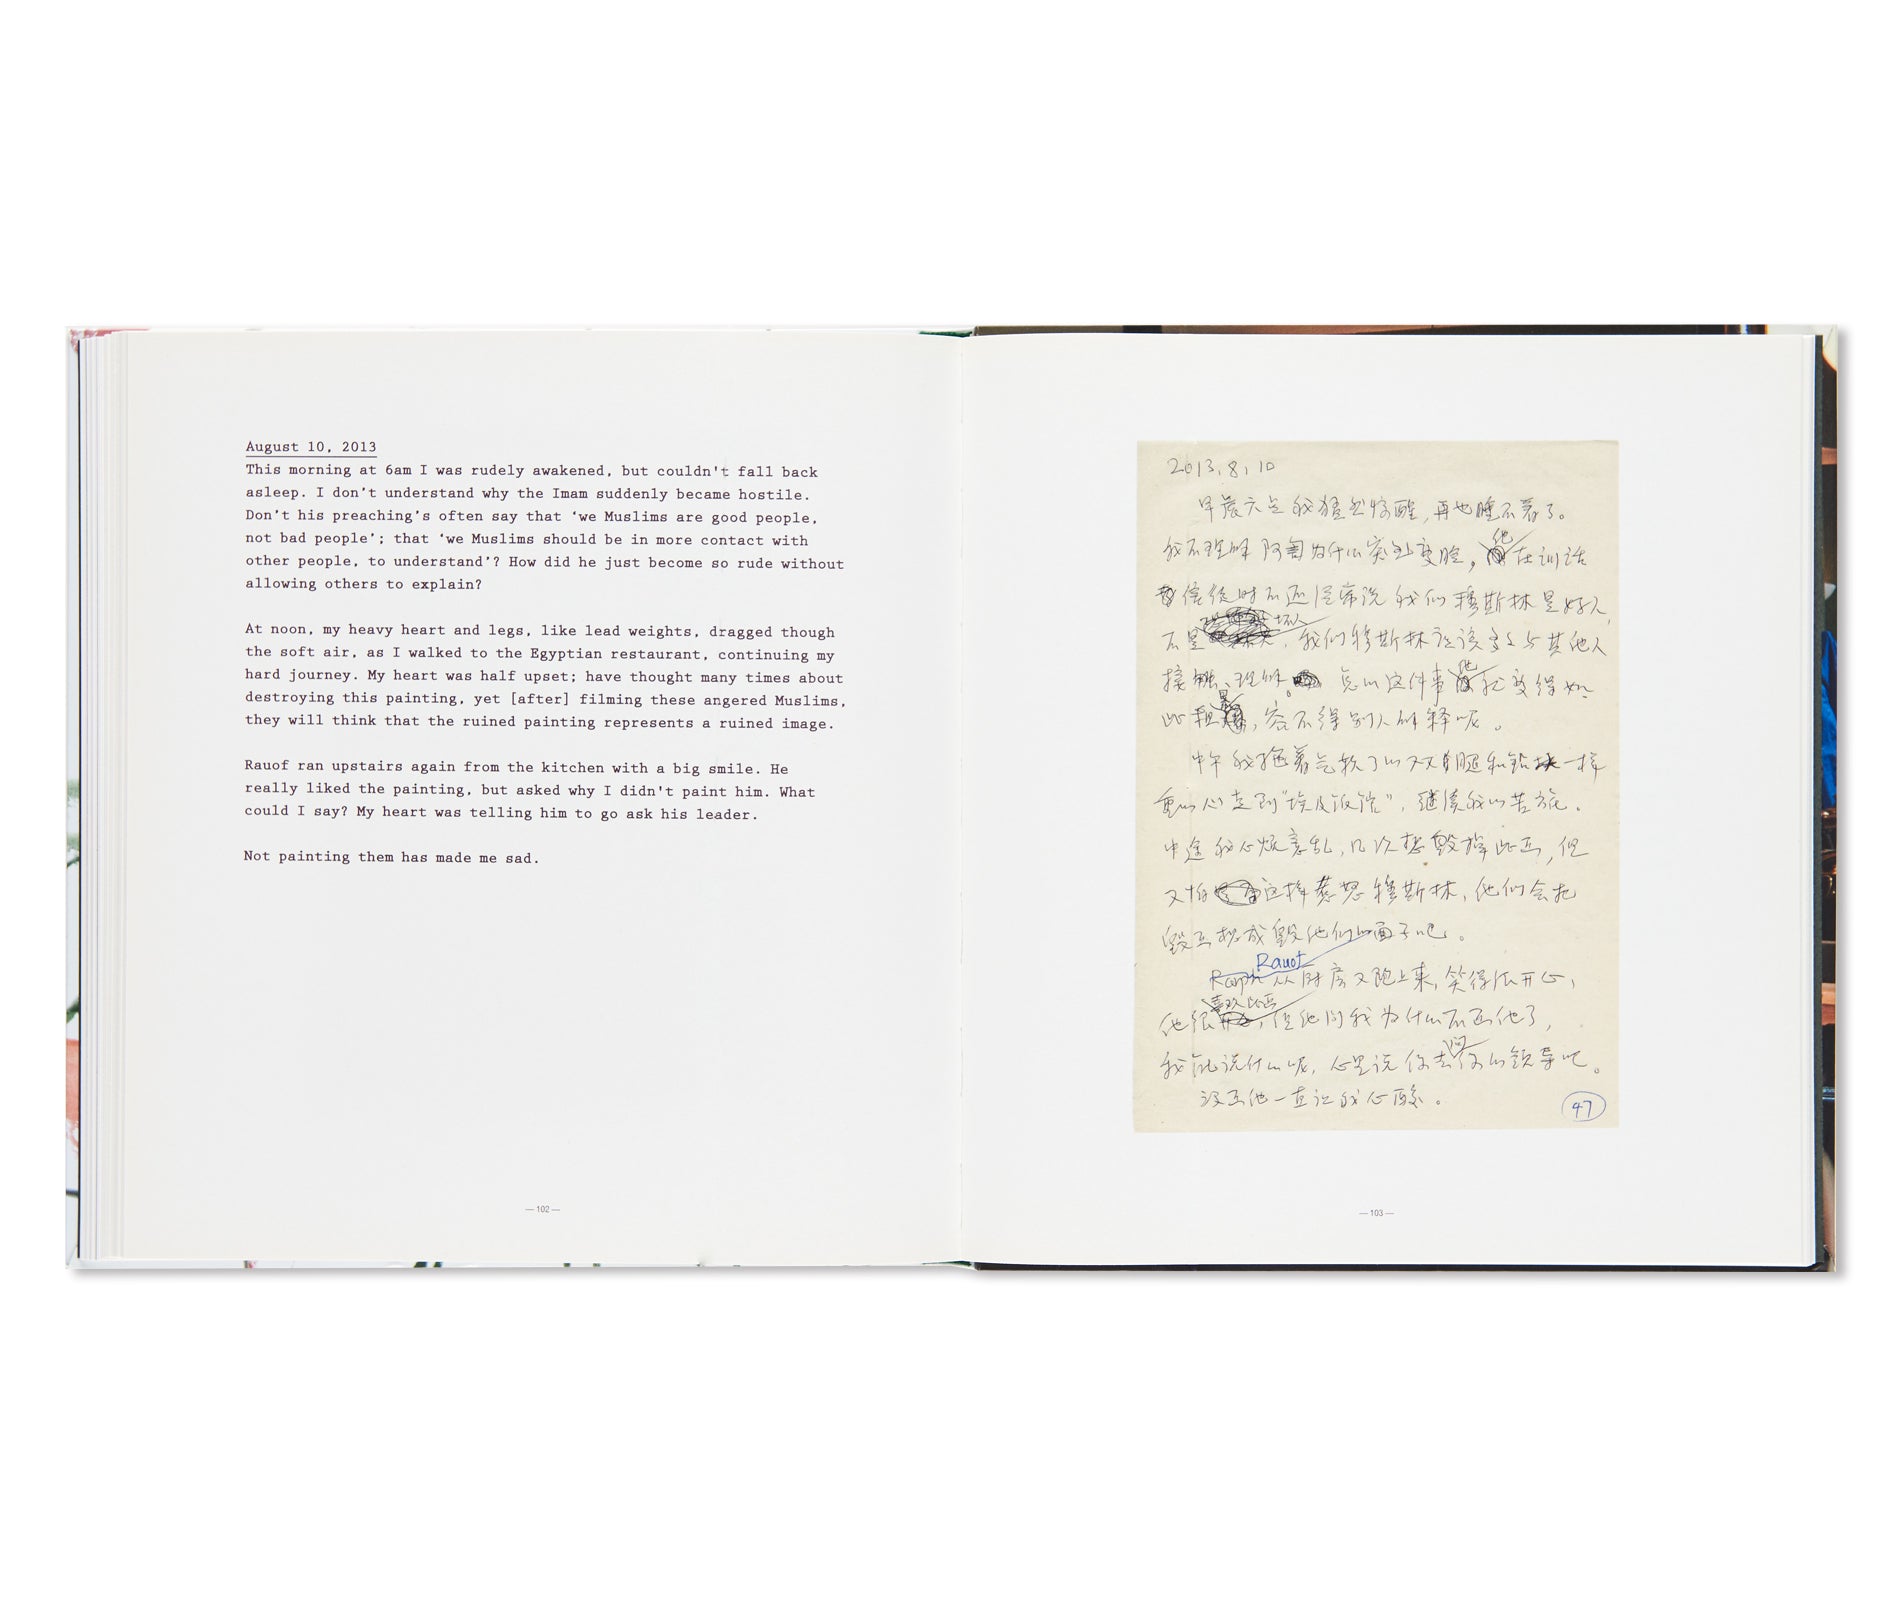 August 10, 2013
This morning at 6am I was rudely awakened, but couldn't fall back
asleep. I don't understand why the Imam suddenly became hostile.
Don't his preaching's often say that 'we Muslims are good people,
not bad people'; that 'we Muslims should be in more contact with
other people, to understand'? How did he just become so rude without
allowing others to explain?
At noon, my heavy heart and legs, like lead weights, dragged though
the soft air, as I walked to the Egyptian restaurant, continuing my
hard journey. My heart was half upset; have thought many times about
destroying this painting, yet [after] filming these angered Muslims,
they will think that the ruined painting represents a ruined image.
Rauof ran upstairs again from the kitchen with a big smile. He
really liked the painting, but asked why I didn't paint him. What
could I say? My heart was telling him to go ask his leader.
Not painting them has made me sad.
— 102 —
2013.8.10
早晨六点我猛然惊醒,再也睡不着了。
我不理解阿訇为什么突然变脸,他在训话
信徒时不还经常说我们穆斯林是好人,
不是坏人,我们穆斯林应该多多与其他人
接触、理解。怎么这件事他就变得如
此粗暴,容不得别人解释呢。
中午我拖着气软了的双腿和铅块一样
重的心走到“埃及饭馆”,继续我的苦旅。
中途我心烦意乱,几次想毁掉此画,但
又怕这样惹怒穆斯林,他们会把
毁画想成毁他们的面子吧。
Rauof 从厨房又跑上来,笑得很开心,
他很喜欢此画,但他问我为什么不画他了,
我能说什么呢,心里说你去问你的领导吧。
没画他一直让我心酸。
47
— 103 —